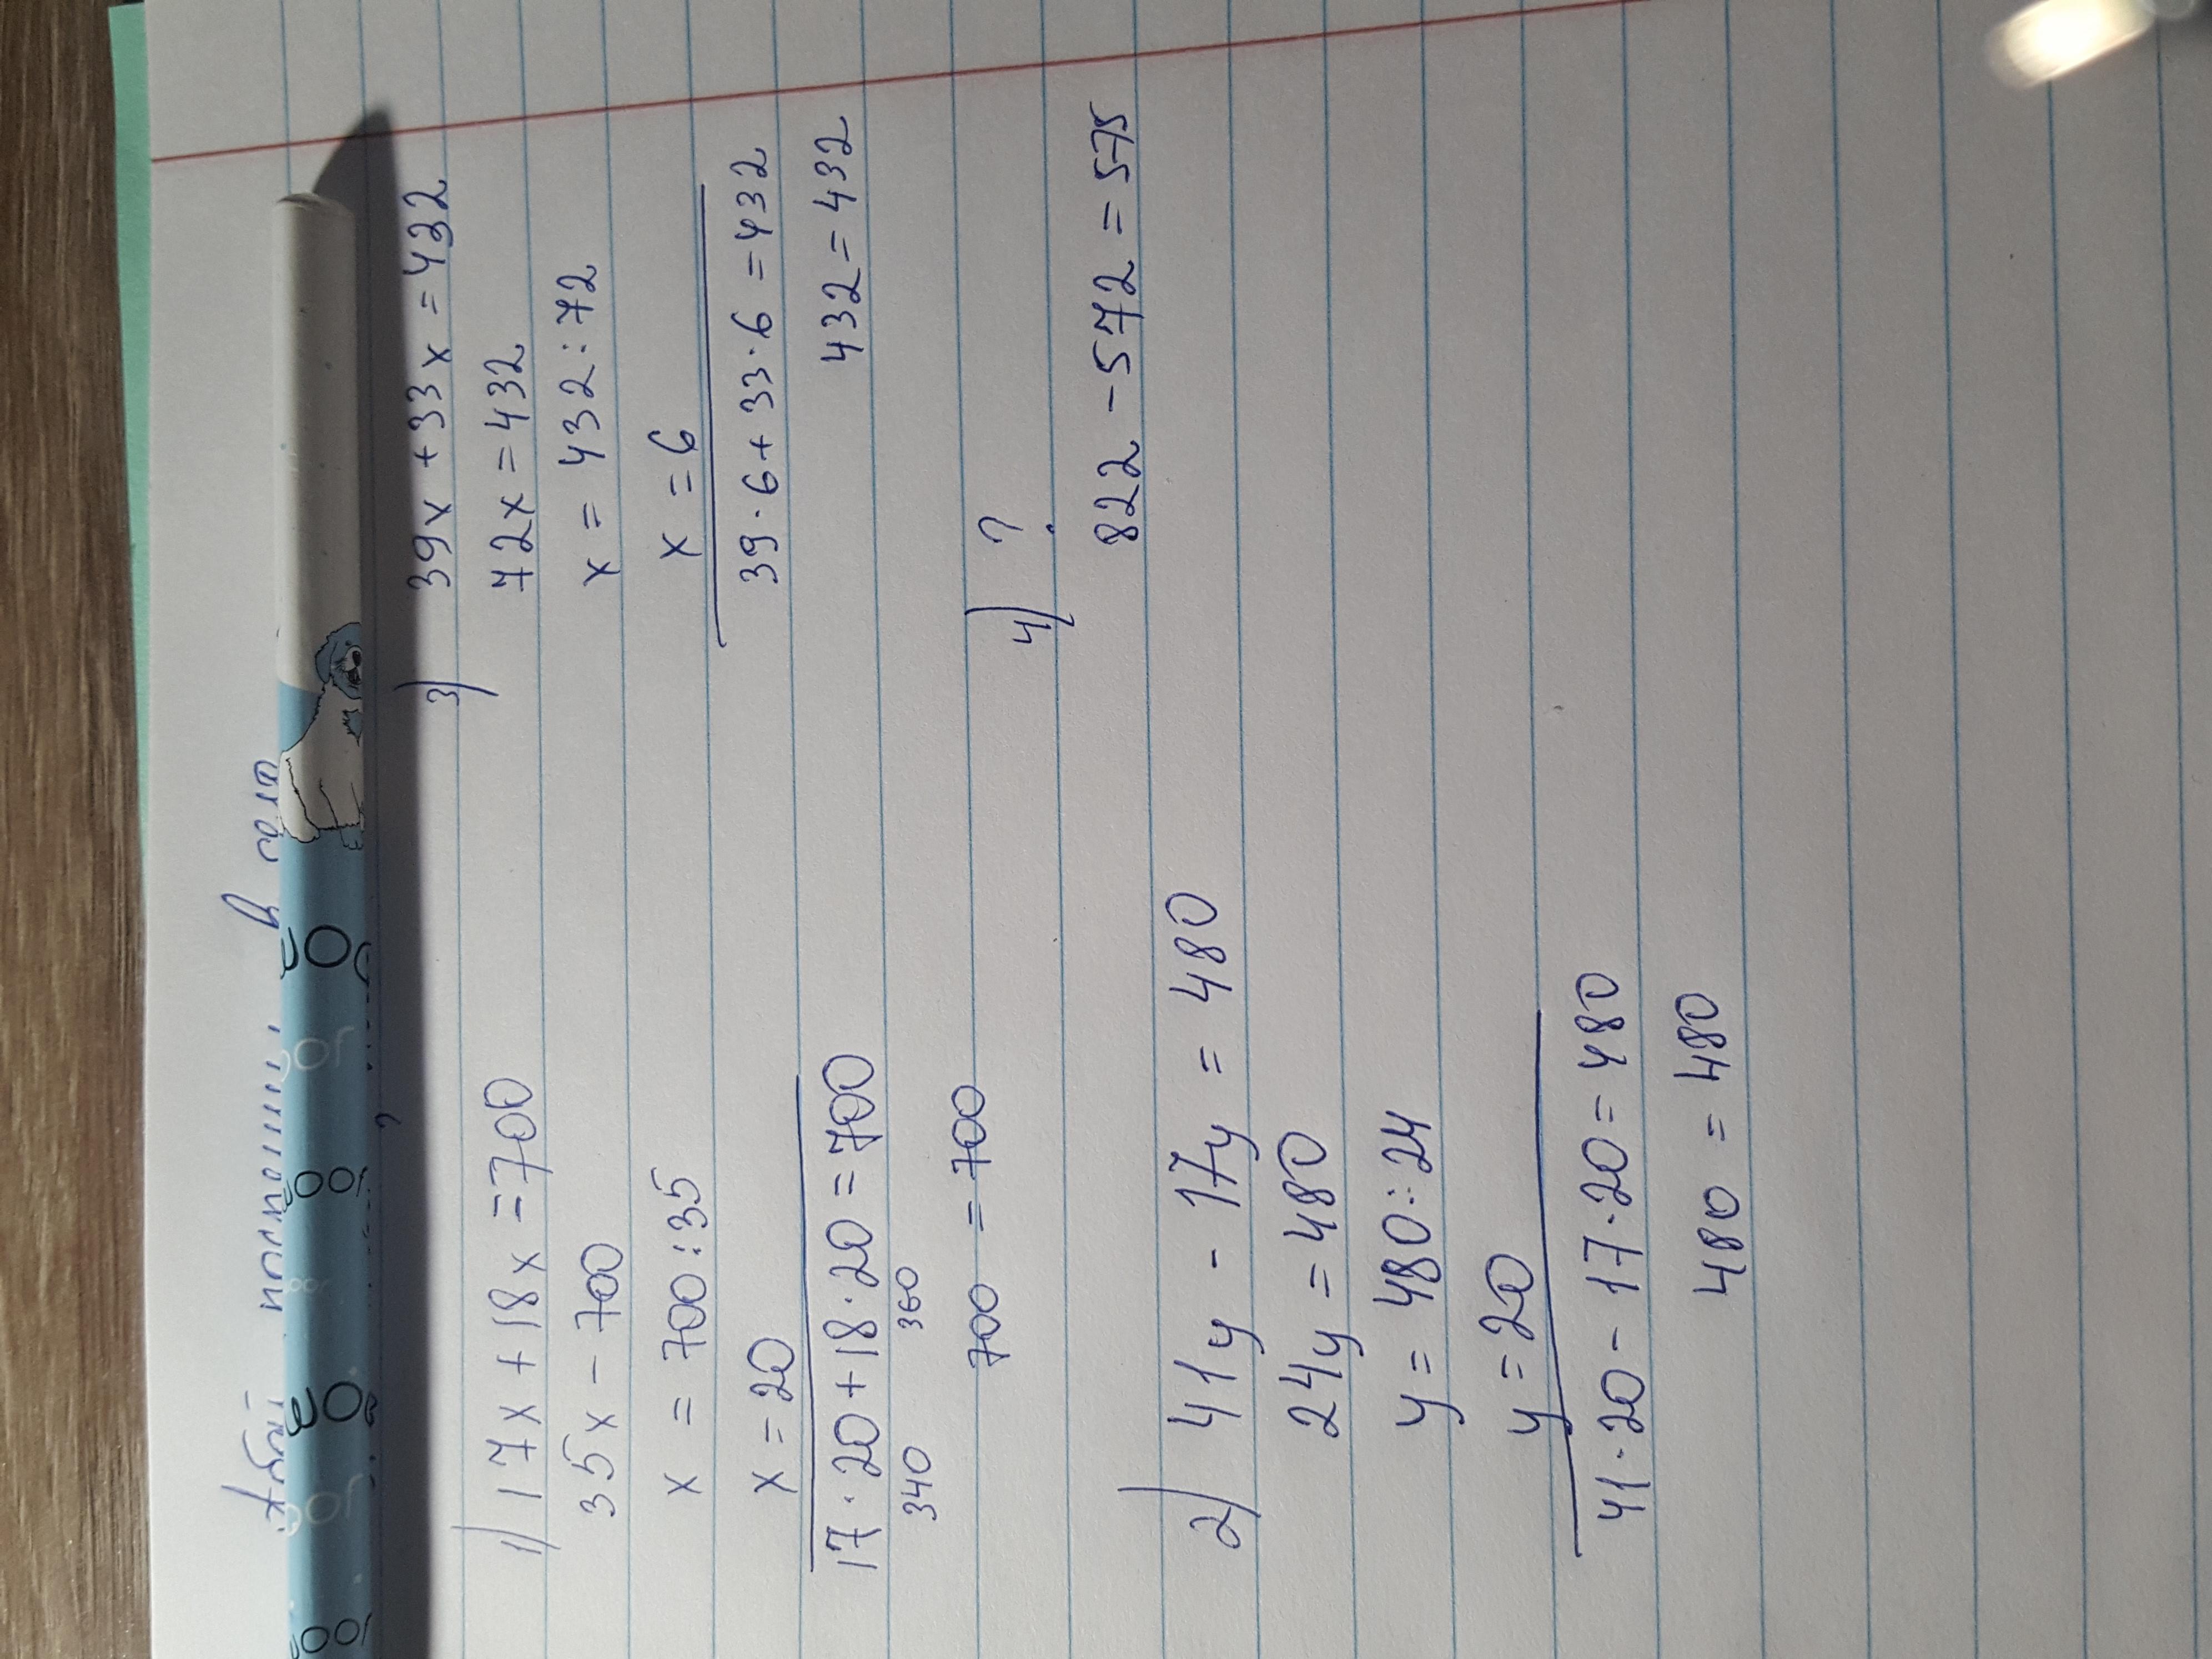 1) 17x + 18x = 700
35x - 700
x = 700 : 35
x = 20
17 · 20 + 18 · 20 = 700
340 360
700 = 700
2) 41y - 17y = 480
24y = 480
y = 480 : 24
y = 20
41 · 20 - 17 · 20 = 480
480 = 480
3) 39x + 33x = 432
72x = 432
x = 432 : 72
x = 6
39 · 6 + 33 · 6 = 432
432 = 432
4) ?
822 - 572 = 575